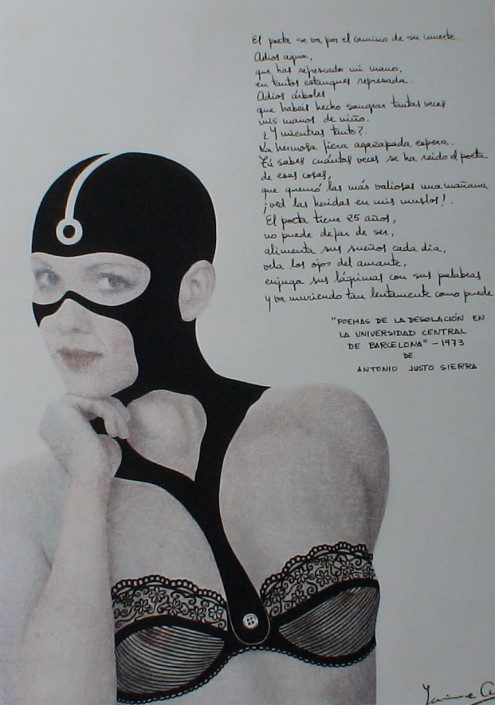 El poeta se va por el camino de su muerte.
Adios agua,
que has refrescado mi mano,
en tantos estanques represada.
Adios árboles
que habeis hecho sangrar tantas veces
mis manos de niño.
¿Y mientras tanto?.
La hermosa fiera agazapada espera.
Tú sabes cuántas veces se ha reido el poeta
de esas cosas,
que quemó las más valiosas una mañana
¡ved las heridas en mis muslos!.
El poeta tiene 25 años,
no puede dejar de ser,
alimenta sus sueños cada dia,
vela los ojos del amante,
enjuga sus lágrimas con sus palabras
y va muriendo tan lentamente como puede
"POEMAS DE LA DESOLACIÓN EN
LA UNIVERSIDAD CENTRAL
DE BARCELONA" - 1973
DE
ANTONIO JUSTO SIERRA